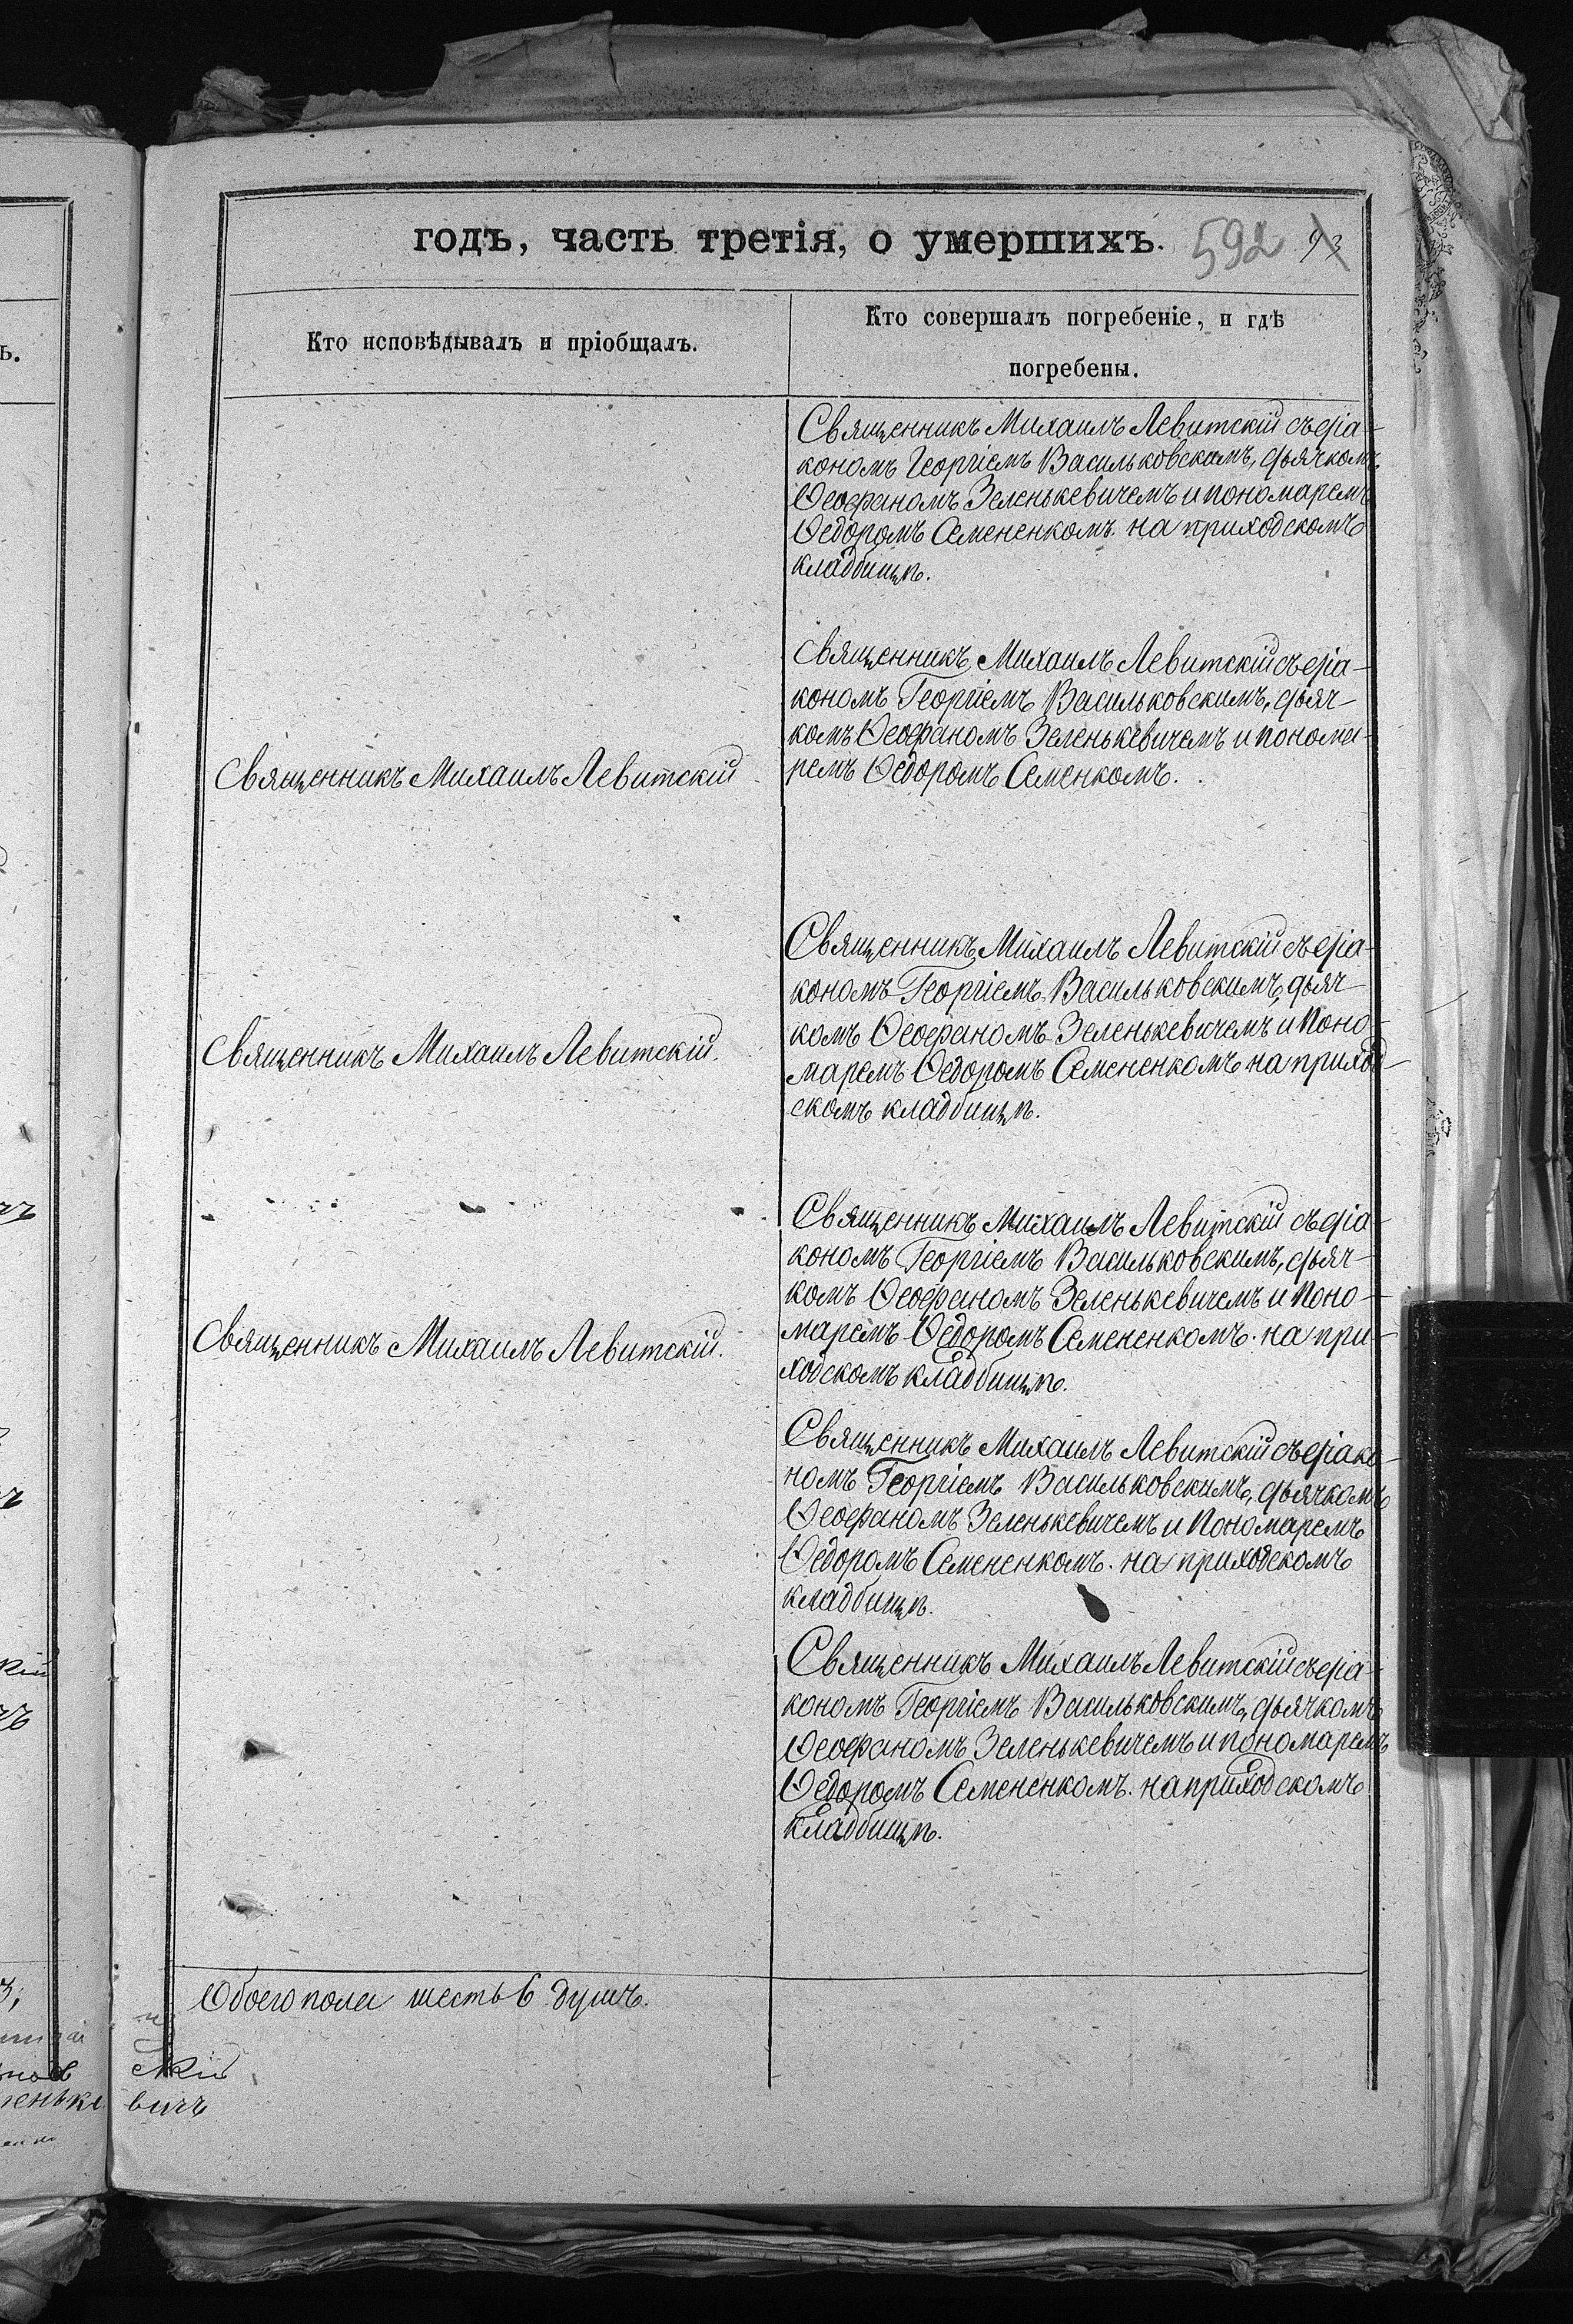 годъ, часть третія, о умершихъ.
592 93
Кто исповѣдывалъ и пріобщалъ.
Кто совершалъ погребеніе, и гдѣ
погребены.
Священникъ Михаилъ Левитскій съ діа-
кономъ Георгіемъ Васильковскимъ, дьячкомъ
Ѳеофаномъ Зеленькевичемъ и пономаремъ
Ѳедоромъ Семененкомъ. на приходскомъ
кладбищѣ.
Священникъ Михаилъ Левитскій
Священникъ Михаилъ Левитскій съ діа-
кономъ Георгіемъ Васильковскимъ, дьяч-
комъ Ѳеофаномъ Зеленькевичемъ и понома-
ремъ Ѳедоромъ Семенкомъ.
Священникъ Михаилъ Левитскій.
Священникъ Михаилъ Левитскій съ діа-
кономъ Георгіемъ Васильковскимъ, дьяч-
комъ Ѳеофаномъ Зеленькевичемъ и Поно-
маремъ Ѳедоромъ Семененкомъ на приход-
скомъ кладбищѣ.
Священникъ Михаилъ Левитскій.
Священникъ Михаилъ Левитскій съ діа-
кономъ Георгіемъ Васильковскимъ, дьяч-
комъ Ѳеофаномъ Зеленькевичемъ и Поно-
маремъ Ѳедоромъ Семененкомъ. на при-
ходскомъ кладбищѣ.
Священникъ Михаилъ Левитскій съ діако-
номъ Георгіемъ Васильковскимъ, дьячкомъ
Ѳеофаномъ Зеленькевичемъ и Пономаремъ
Ѳедоромъ Семененкомъ. на приходскомъ
кладбищѣ.
Священникъ Михаилъ Левитскій съ діа-
кономъ Георгіемъ Васильковскимъ, дьячкомъ
Ѳеофаномъ Зеленькевичемъ и пономаремъ
Ѳедоромъ Семененкомъ. на приходскомъ
кладбищѣ.
Обоего пола шесть 6 душъ.
скій
вичъ